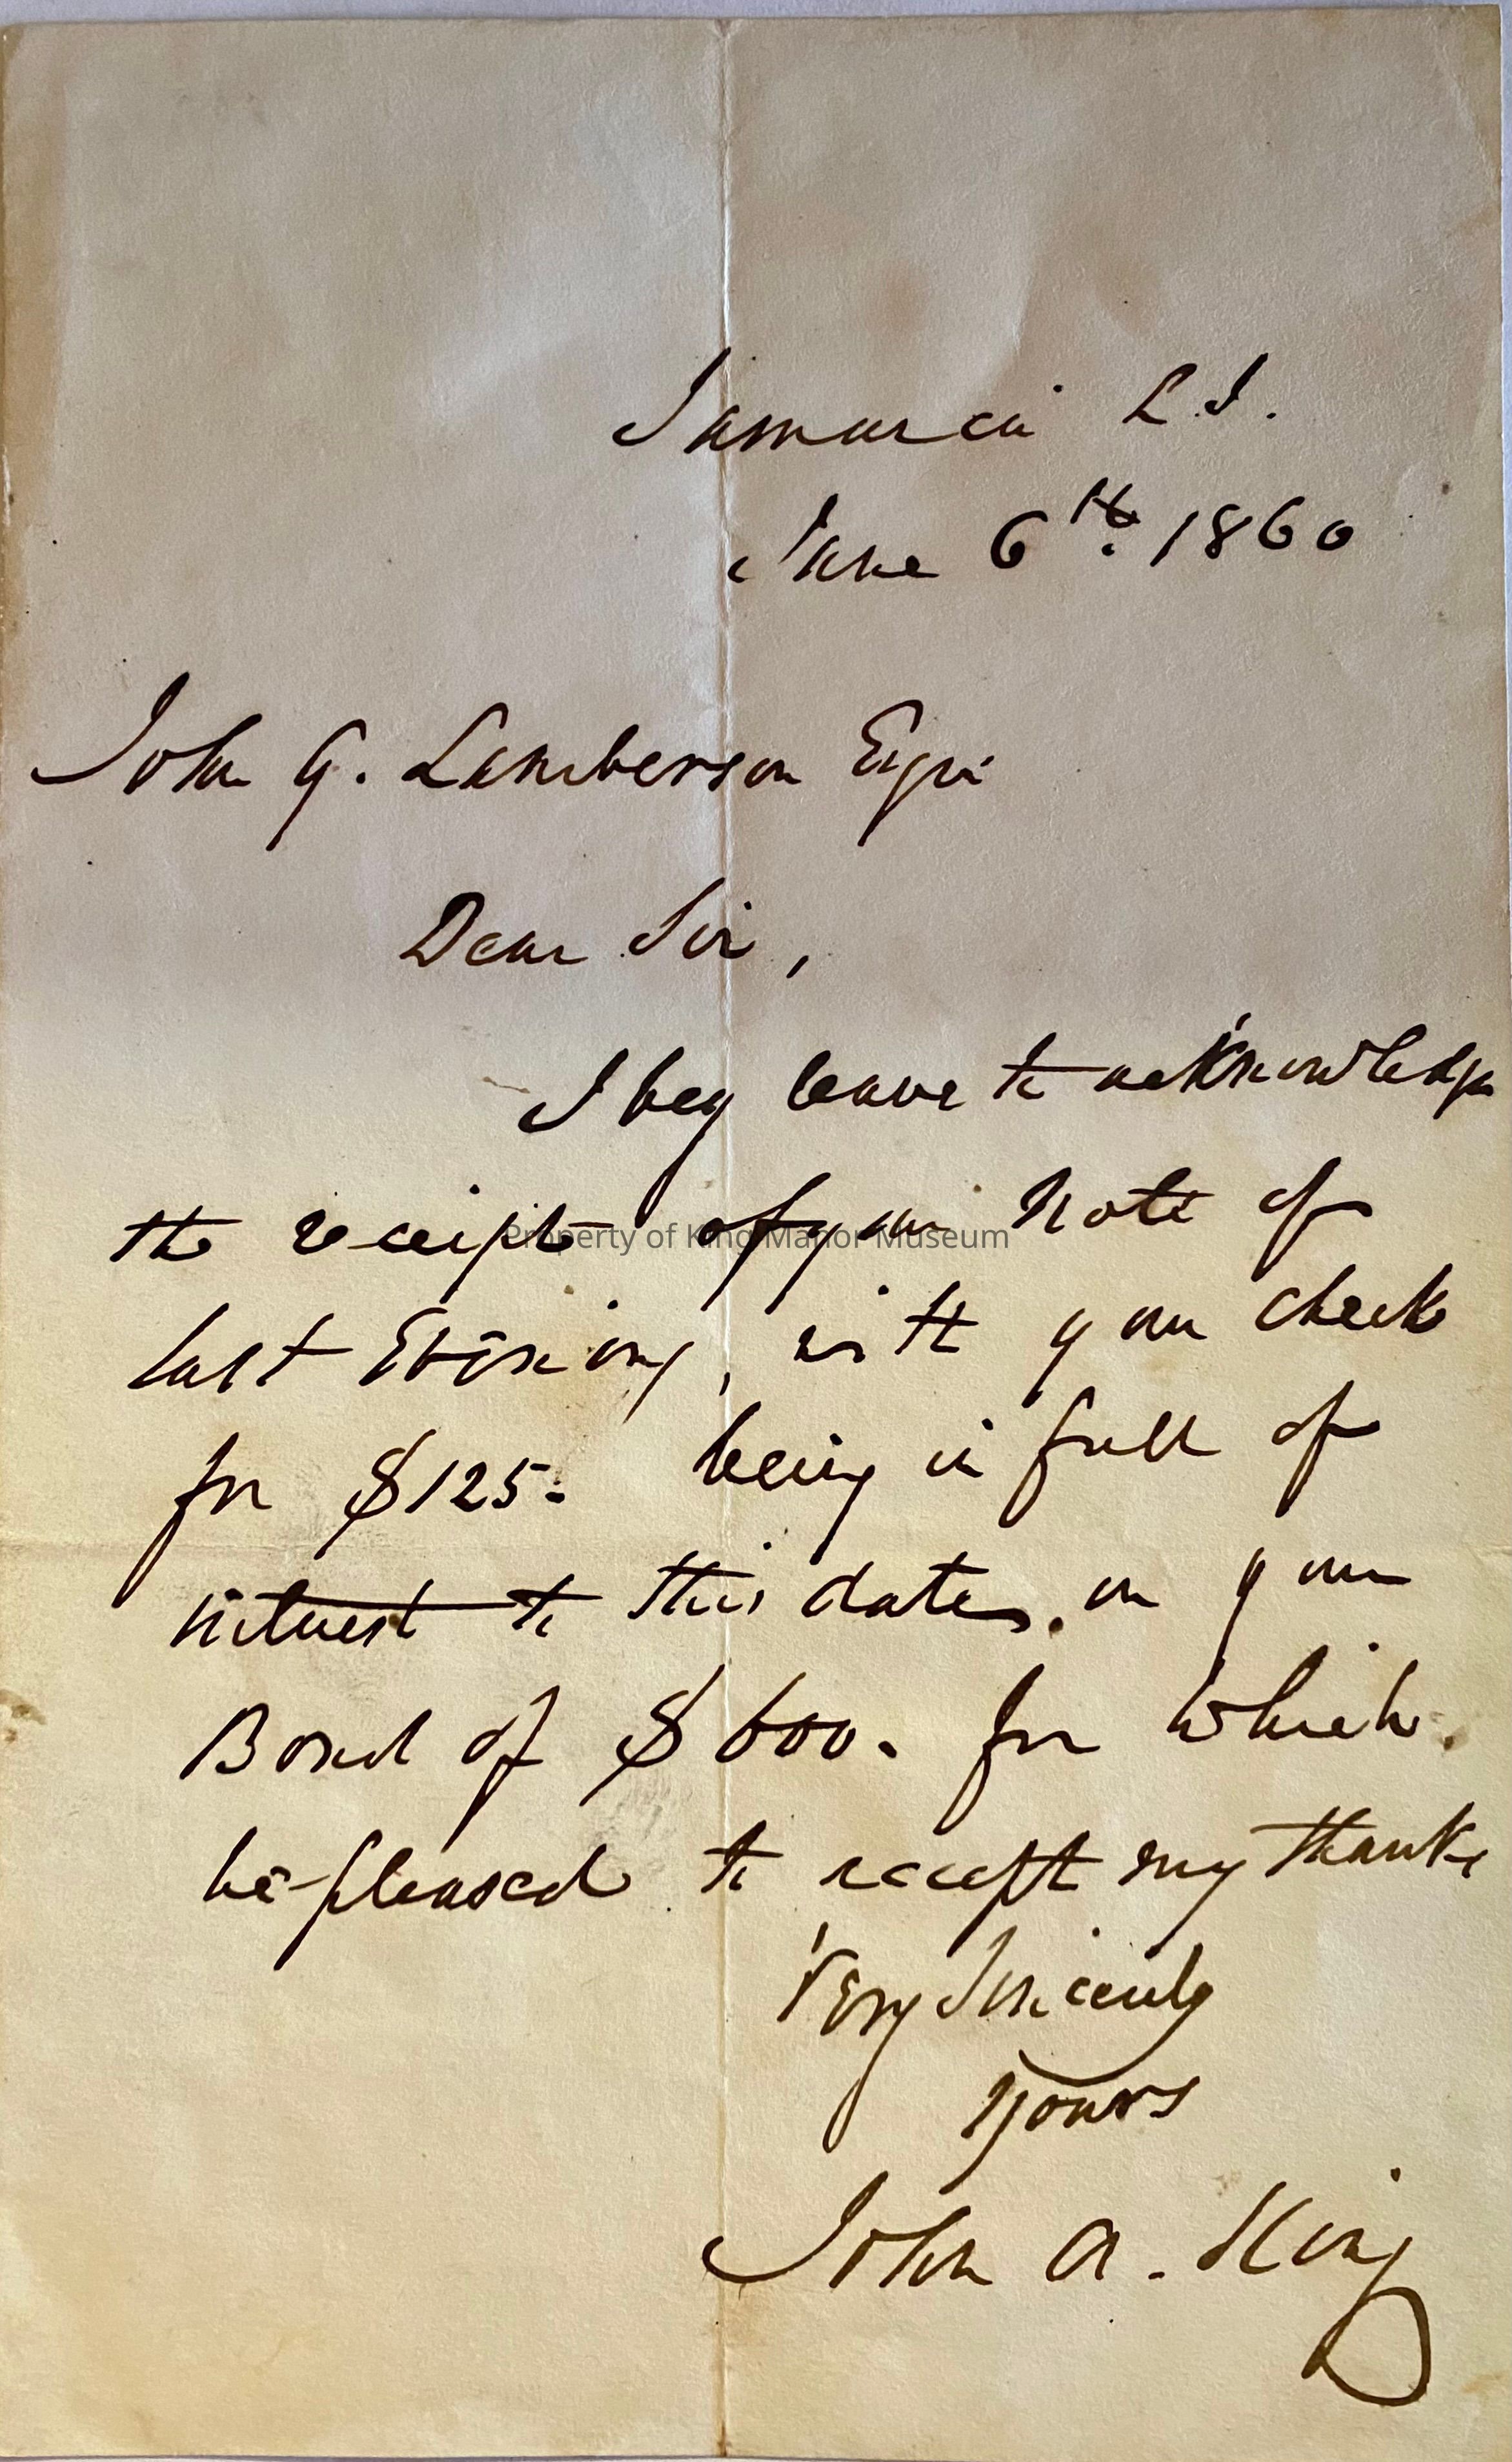 Jamaica L.I.
June 6th. 1860
John G. Lamberson Esqr
Dear Sir,
I beg leave to acknowledge
the receipt of your note of
Property of King Manor Museum
last Evening, with your check
for $125. being in full of
interest to this date, on your
Bond of $600. for which
be pleased to accept my thanks
Very Sincerely
Yours
John A. King